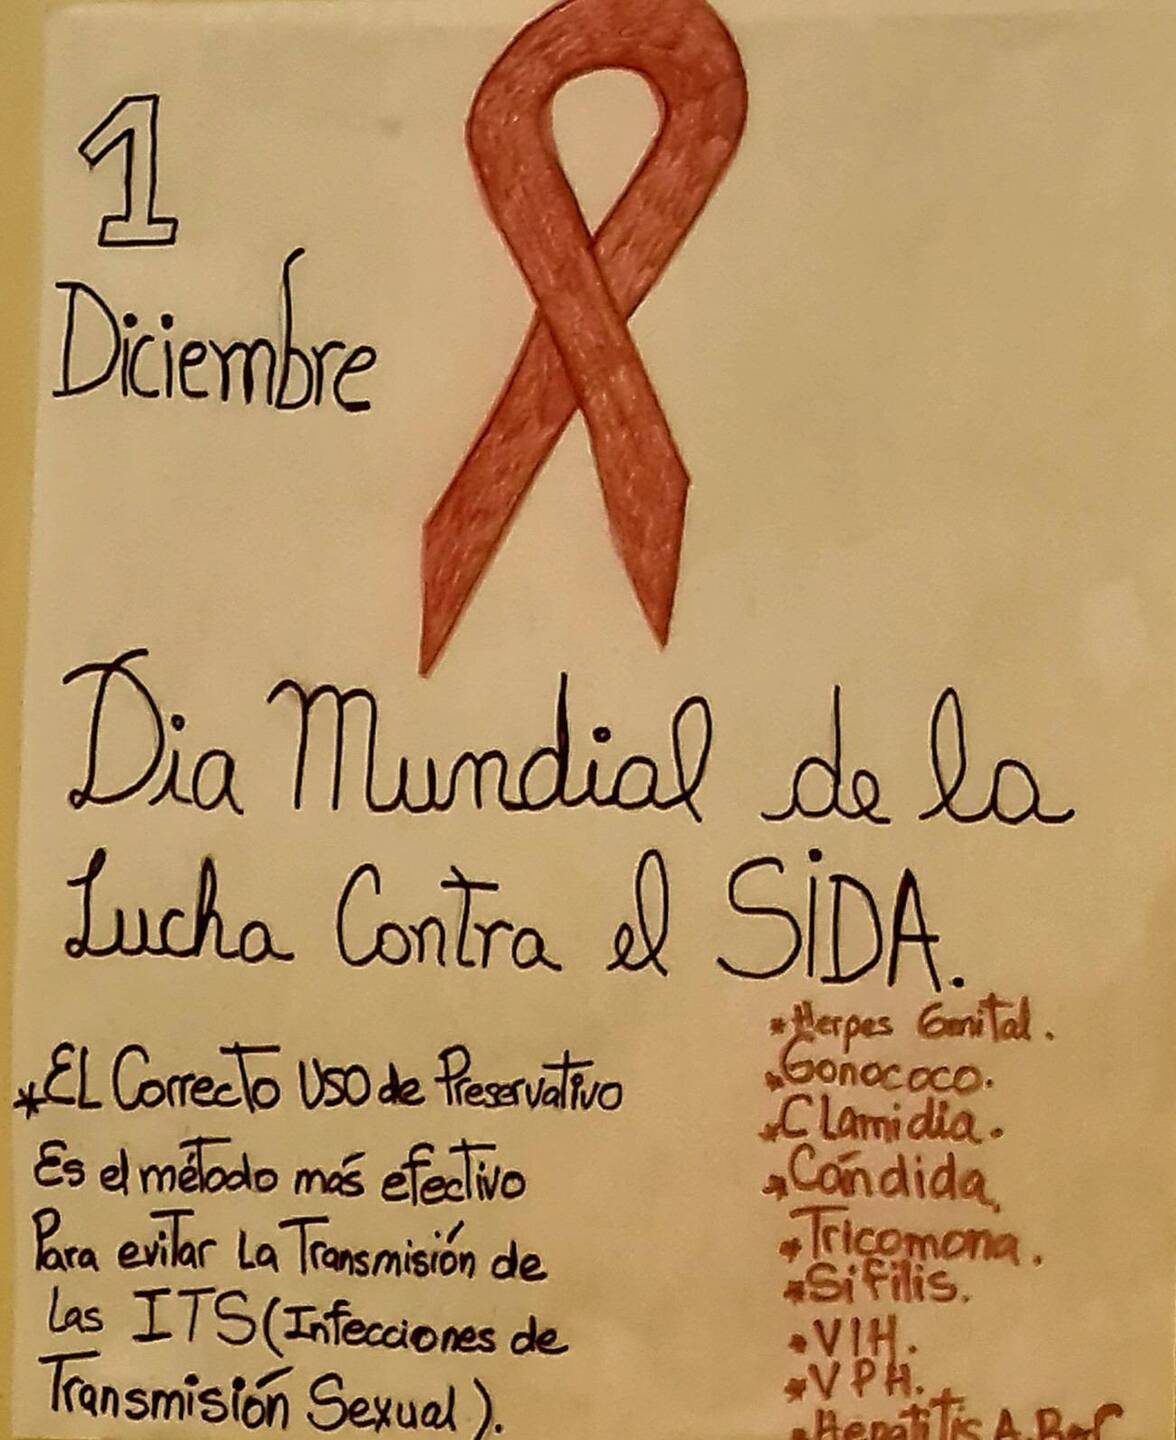 1
Diciembre
Dia Mundial de la
Lucha Contra el SIDA.
*EL Correcto USO de Preservativo
Es el método más efectivo
Para evitar La Transmisión de
Las ITS (Infecciones de
Transmisión Sexual).
*Herpes Genital.
*Gonococo.
*Clamidia.
*Cándida.
*Tricomona.
*Sifilis.
*VIH.
*VPH.
*Hepatitis A.B